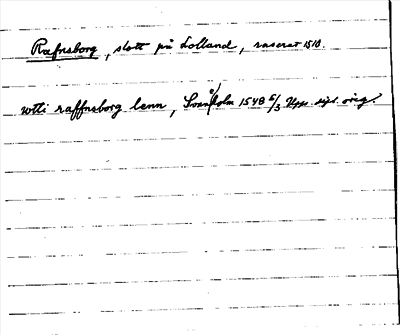 Ræfnsborg, slott på Lolland, raserat 1510.
wtti raffnsborg lenn, Svanholm 1548 5/3 Upps. sigl. orig.